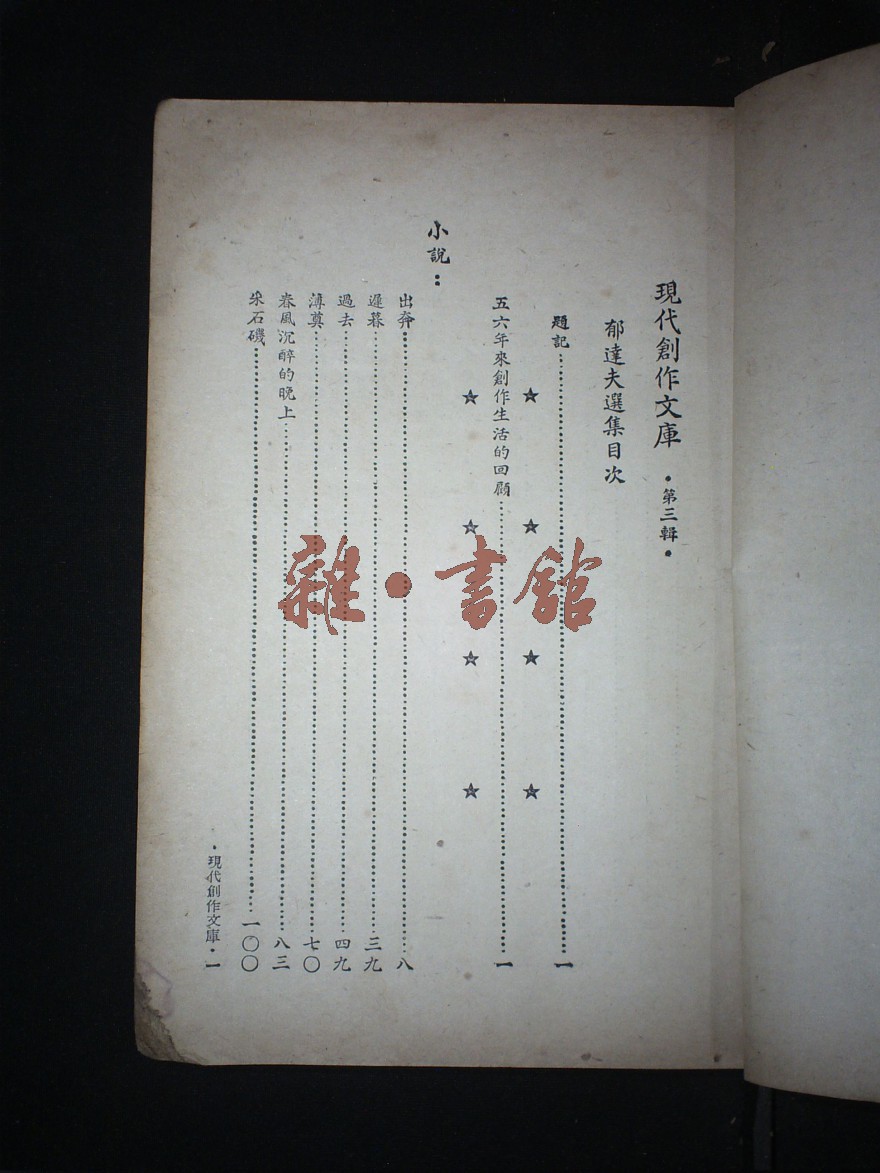 現代創作文庫 •第三輯•
郁達夫選集目次
題記……一
★ ★ ★ ★
五六年來創作生活的回顧……一
★ ★ ★ ★
小說：
出奔……八
遲暮……三九
過去……四九
薄奠……七〇
春風沉醉的晚上……八三
采石磯……一〇〇
•現代創作文庫•一
雜•書館